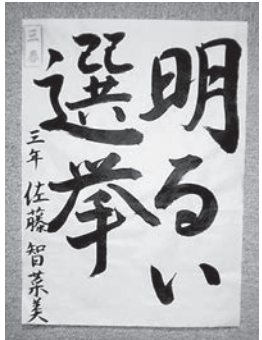 明るい
選挙
三年 佐藤智菜美